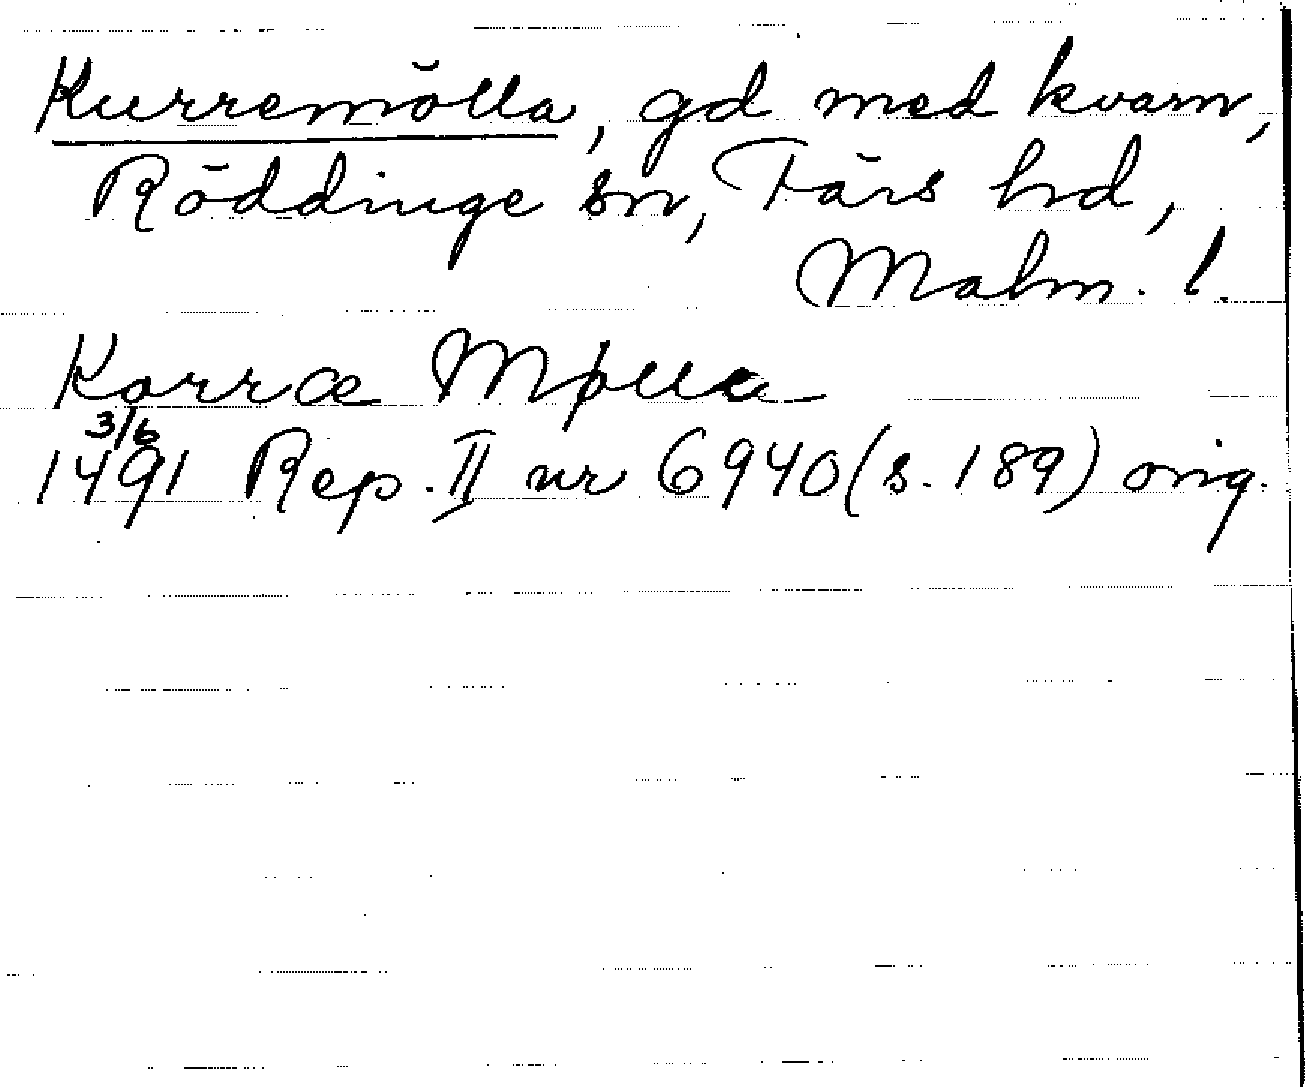 Kurremölla, gd med kvarn,
Röddinge sn, Färs hd,
Malm. l.
Korræ Møllæ
3/6
1491 Rep. II nr 6940 (s. 189) orig.